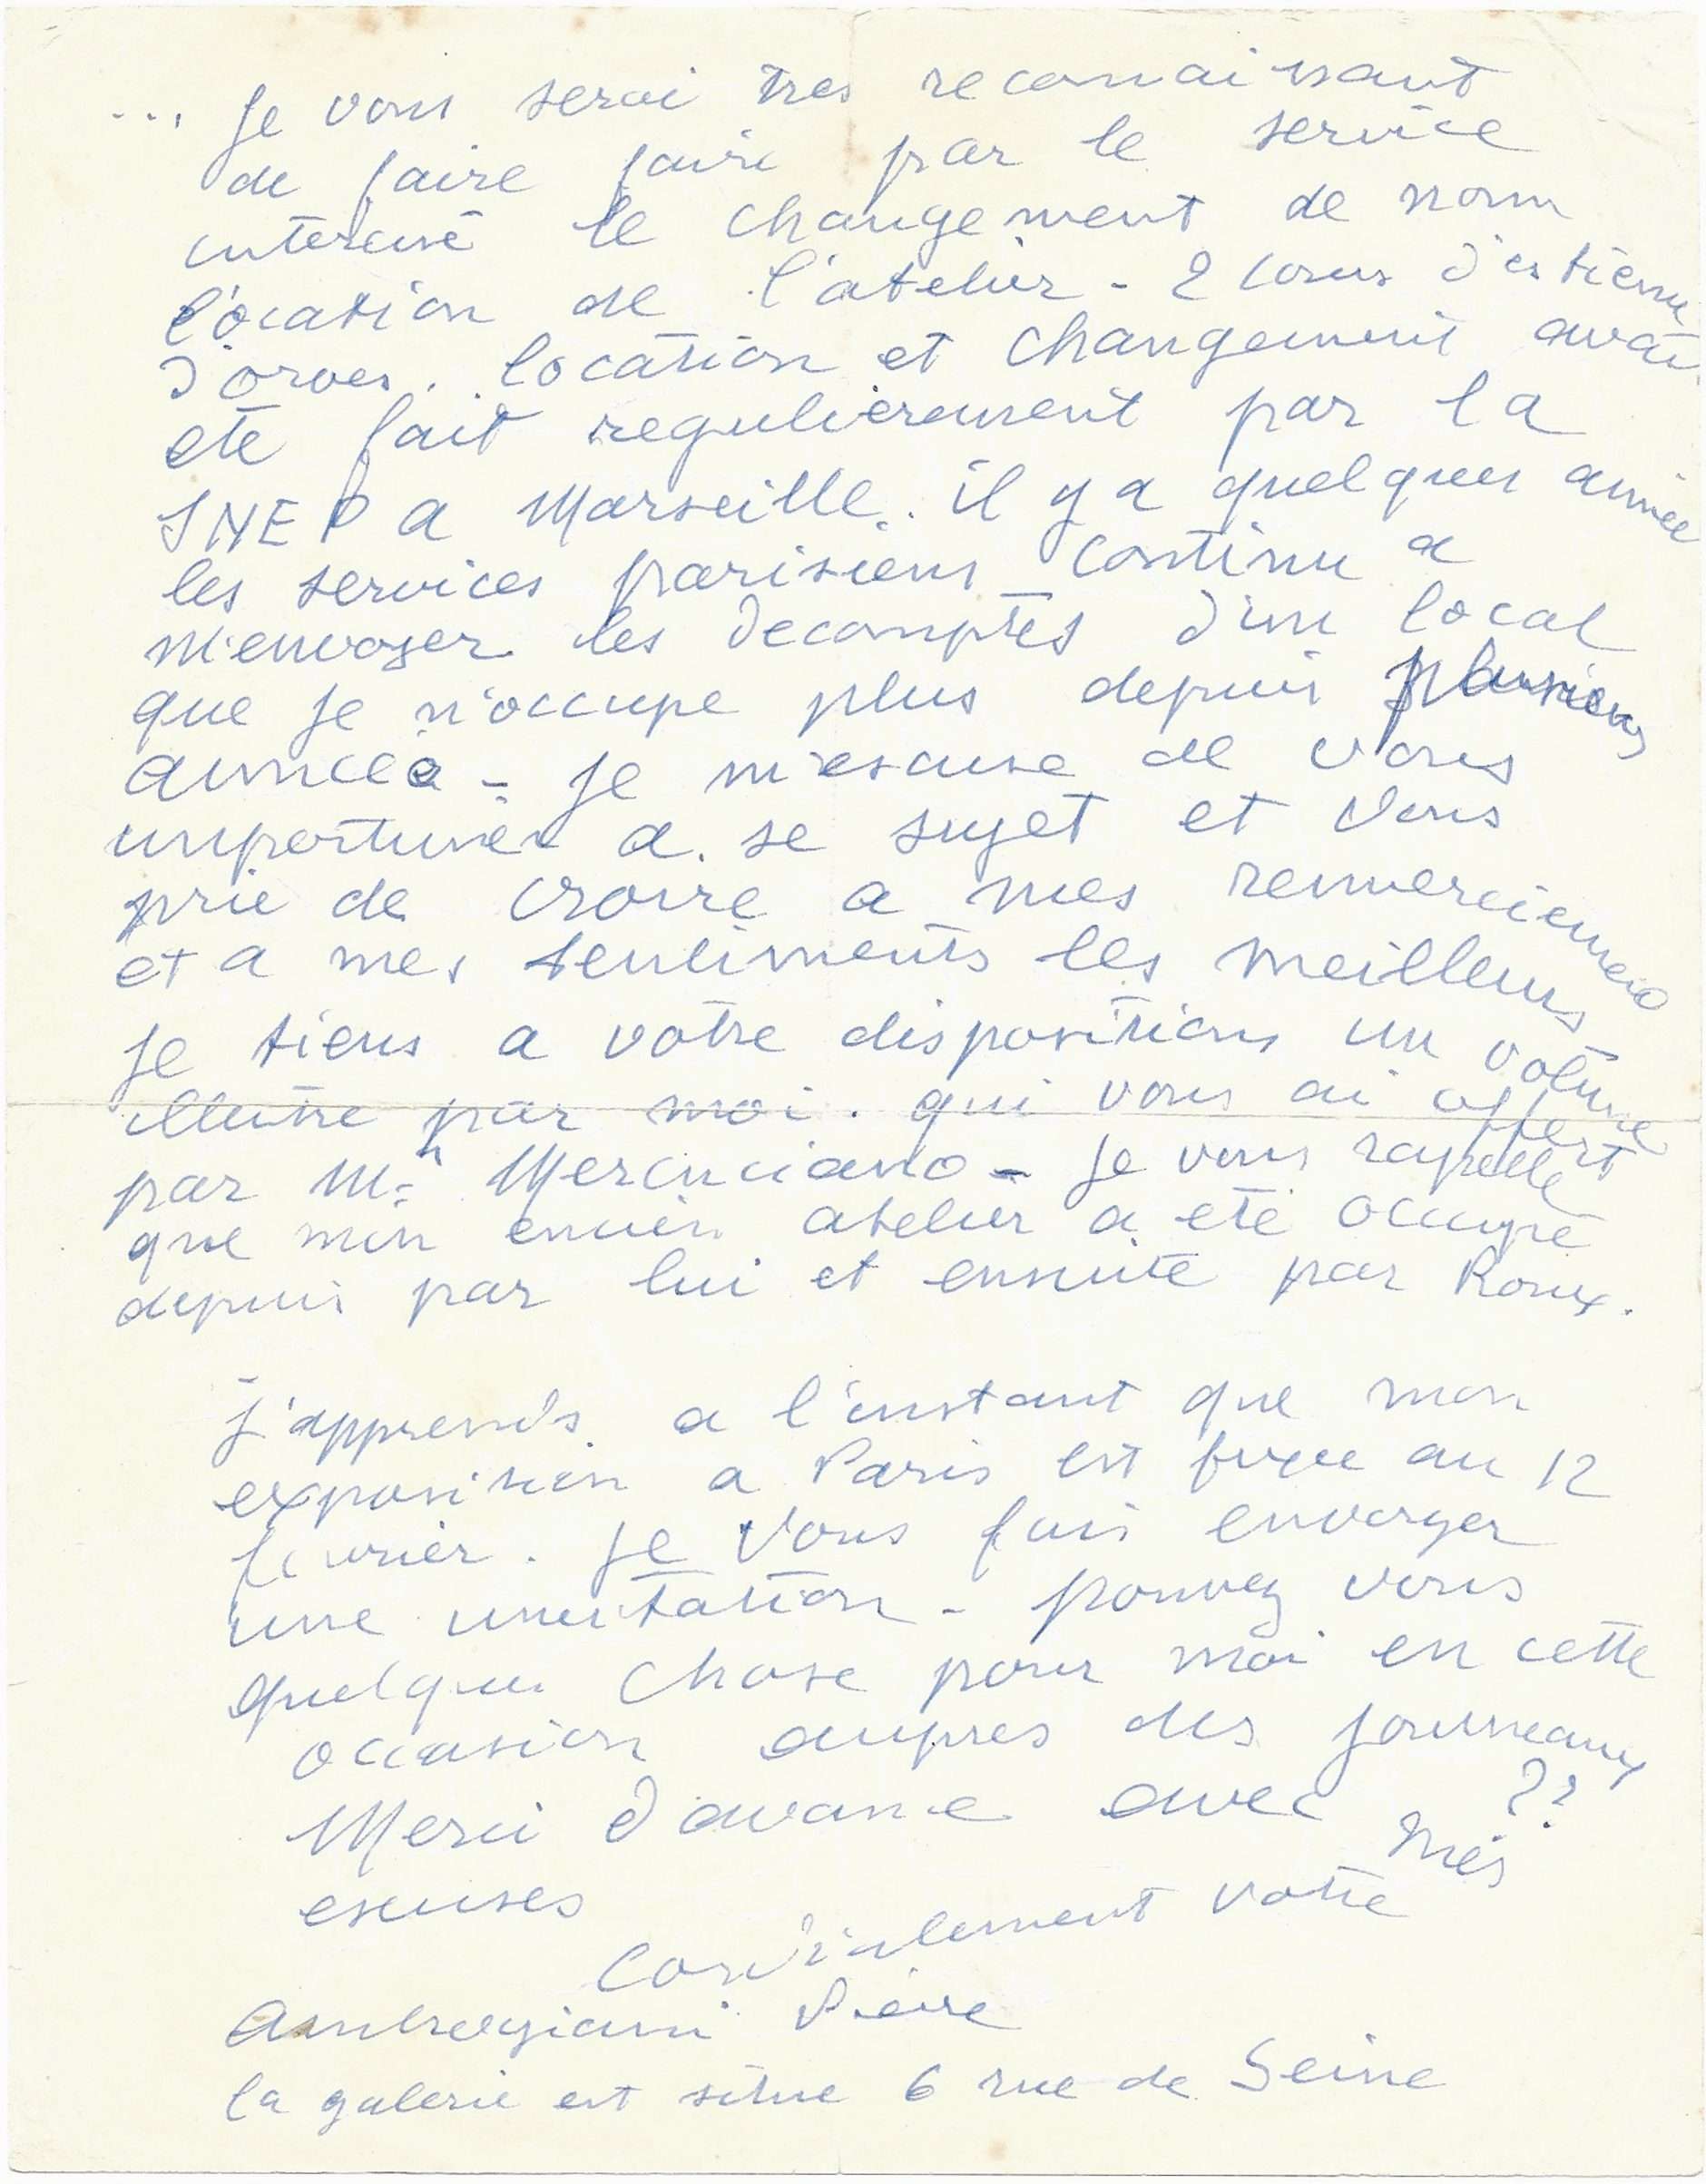 ... je vous serai tres reconnaissant
de faire faire par le service
interessé le changement de nom
location de l'atelier - 2 cours d'estienne
d'orves. location et changement avait
eté fait regulierement par la
SNEP a Marseille. il y a quelques année
les services parisiens continu a
m'envoyer les decomptes d'un local
que je n'occupe plus depuis plusieurs
années - je m'escuse de vous
importuner a se sujet et vous
prie de croire a mes remerciements
et a mes sentiments les meilleurs
je tiens a votre dispositions un volume
illustre par moi. qui vous ai offert
par Mr je vous rapelle
que mon encien atelier a eté occupé
depuis par lui et ensuite par Roux.
j'apprends a l'instant que mon
exposition a Paris est fixee au 12
fevrier. je vous fais envoyer
une invitation - pouvez vous
quelque chose pour moi en cette
occasion aupres des journeaux
??
Merci d'avance avec mes
escuses
Cordialement votre
Ambrogiani Pierre
la galerie est situe 6 rue de Seine